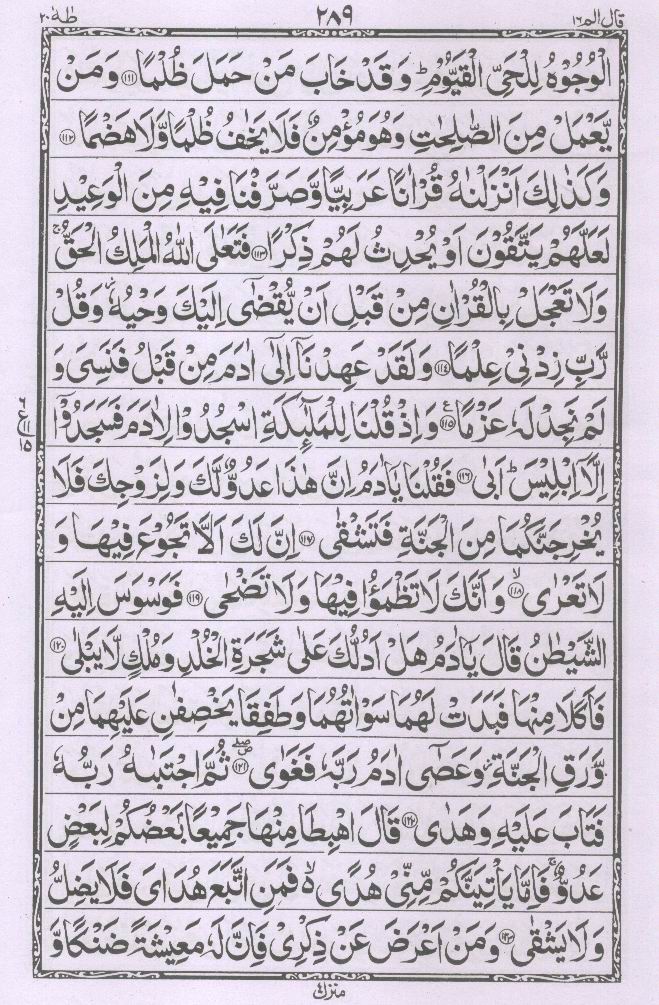 قال الم ١٦
٢٨٩
طٰهٰ ٢٠
الْوُجُوْهُ لِلْحَيِّ الْقَيُّوْمِ ؕ وَقَدْ خَابَ مَنْ حَمَلَ ظُلْمًا ﴿١١١﴾ وَمَنْ
يَّعْمَلْ مِنَ الصّٰلِحٰتِ وَهُوَ مُؤْمِنٌ فَلَا يَخٰفُ ظُلْمًا وَّلَا هَضْمًا ﴿١١٢﴾
وَكَذٰلِكَ اَنْزَلْنٰهُ قُرْاٰنًا عَرَبِيًّا وَّصَرَّفْنَا فِيْهِ مِنَ الْوَعِيْدِ
لَعَلَّهُمْ يَتَّقُوْنَ اَوْ يُحْدِثُ لَهُمْ ذِكْرًا ﴿١١٣﴾ فَتَعٰلَى اللّٰهُ الْمَلِكُ الْحَقُّ ۚ
وَلَا تَعْجَلْ بِالْقُرْاٰنِ مِنْ قَبْلِ اَنْ يُّقْضٰٓى اِلَيْكَ وَحْيُهٗ ؗ وَقُلْ
رَّبِّ زِدْنِيْ عِلْمًا ﴿١١٤﴾ وَلَقَدْ عَهِدْنَاۤ اِلٰۤى اٰدَمَ مِنْ قَبْلُ فَنَسِيَ وَ
لَمْ نَجِدْ لَهٗ عَزْمًا ﴿١١٥﴾ وَاِذْ قُلْنَا لِلْمَلٰٓئِكَةِ اسْجُدُوْا لِاٰدَمَ فَسَجَدُوْۤا
اِلَّاۤ اِبْلِيْسَ ؕ اَبٰى ﴿١١٦﴾ فَقُلْنَا يٰۤاٰدَمُ اِنَّ هٰذَا عَدُوٌّ لَّكَ وَلِزَوْجِكَ فَلَا
يُخْرِجَنَّكُمَا مِنَ الْجَنَّةِ فَتَشْقٰى ﴿١١٧﴾ اِنَّ لَكَ اَلَّا تَجُوْعَ فِيْهَا وَ
لَا تَعْرٰى ۙ﴿١١٨﴾ وَاَنَّكَ لَا تَظْمَؤُا فِيْهَا وَلَا تَضْحٰى ﴿١١٩﴾ فَوَسْوَسَ اِلَيْهِ
الشَّيْطٰنُ قَالَ يٰۤاٰدَمُ هَلْ اَدُلُّكَ عَلٰى شَجَرَةِ الْخُلْدِ وَمُلْكٍ لَّا يَبْلٰى ﴿١٢٠﴾
فَاَكَلَا مِنْهَا فَبَدَتْ لَهُمَا سَوْاٰتُهُمَا وَطَفِقَا يَخْصِفٰنِ عَلَيْهِمَا مِنْ
وَّرَقِ الْجَنَّةِ ؗ وَعَصٰۤى اٰدَمُ رَبَّهٗ فَغَوٰى ۖ﴿١٢١﴾ ثُمَّ اجْتَبٰهُ رَبُّهٗ
فَتَابَ عَلَيْهِ وَهَدٰى ﴿١٢٢﴾ قَالَ اهْبِطَا مِنْهَا جَمِيْعًۢا بَعْضُكُمْ لِبَعْضٍ
عَدُوٌّ ۚ فَاِمَّا يَاْتِيَنَّكُمْ مِّنِّيْ هُدًى ۙ۬ فَمَنِ اتَّبَعَ هُدَايَ فَلَا يَضِلُّ
وَلَا يَشْقٰى ﴿١٢٣﴾ وَمَنْ اَعْرَضَ عَنْ ذِكْرِيْ فَاِنَّ لَهٗ مَعِيْشَةً ضَنْكًا وَّ
٦
ع ١١
١٥
منزل ٤